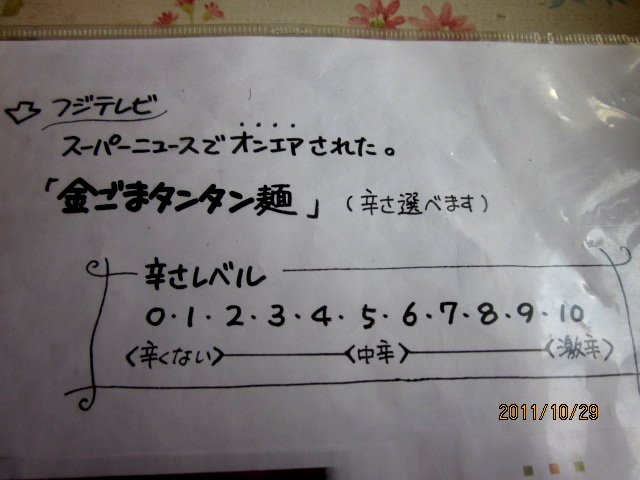 フジテレビ
スーパーニュースでオンエアされた。
「金ごまタンタン麺」(辛さ選べます)
辛さレベル
0・1・2・3・4・5・6・7・8・9・10
〈辛くない〉 〈中辛〉 〈激辛〉
2011/10/29